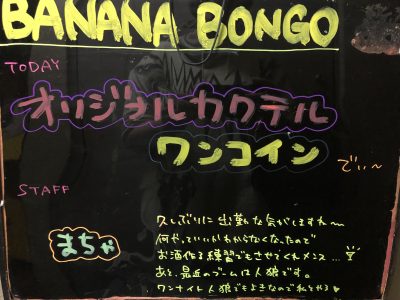 BANANA BONGO
TODAY
オリジナルカクテル
ワンコイン
でぃ〜
STAFF
まちゃ
久しぶりに出勤な気がしますね〜
何やっていいかわからなくなったので
お酒作る練習でもさせてくれメンス…
あと、最近のブームは人狼です。
ワンナイト人狼でもよきなので私とやろ